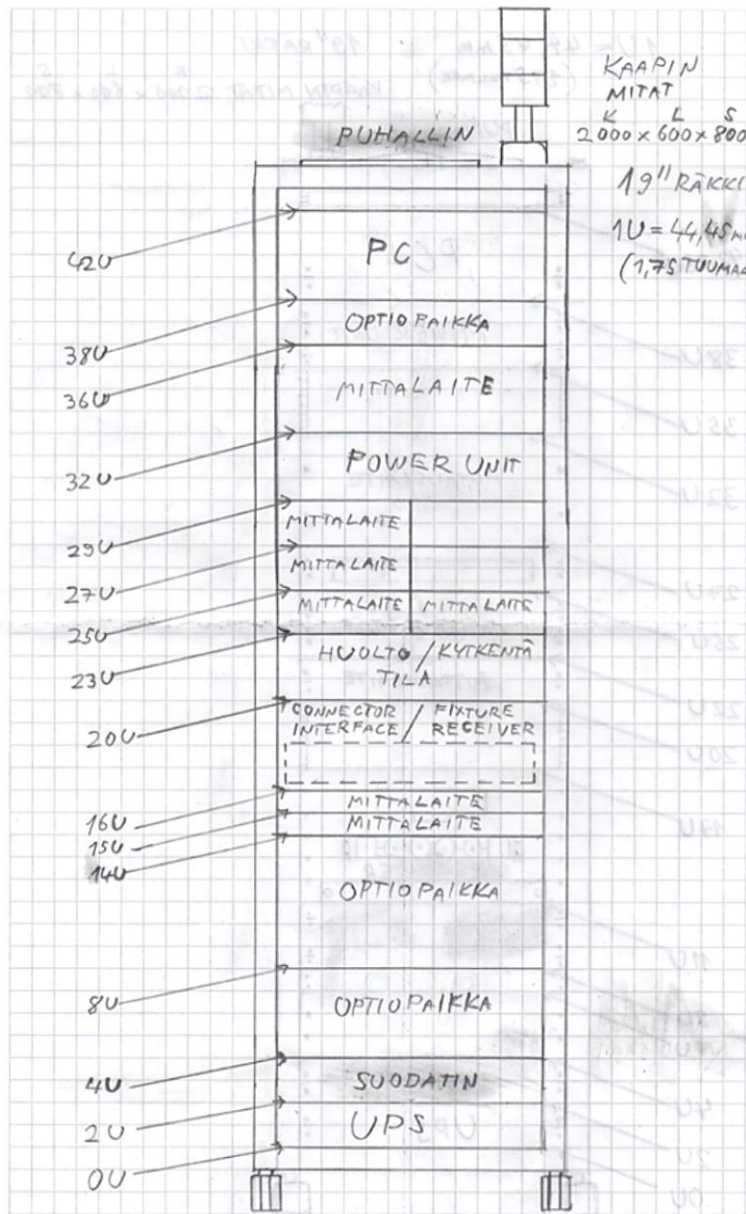 KAAPIN
MITAT
K L S
2000 x 600 x 800
19" RÄKKI
1U = 44,45 M
(1,75 TUUMAA
PUHALLIN
42U
PC
38U
OPTIOPAIKKA
36U
MITTALAITE
32U
POWER UNIT
29U
MITTALAITE
27U
MITTALAITE
25U
MITTALAITE MITTALAITE
23U
HUOLTO / KYTKENTÄ
TILA
20U
CONNECTOR / FIXTURE
INTERFACE / RECEIVER
16U
MITTALAITE
15U
MITTALAITE
14U
OPTIOPAIKKA
8U
OPTIOPAIKKA
4U
SUODATIN
2U
UPS
0U